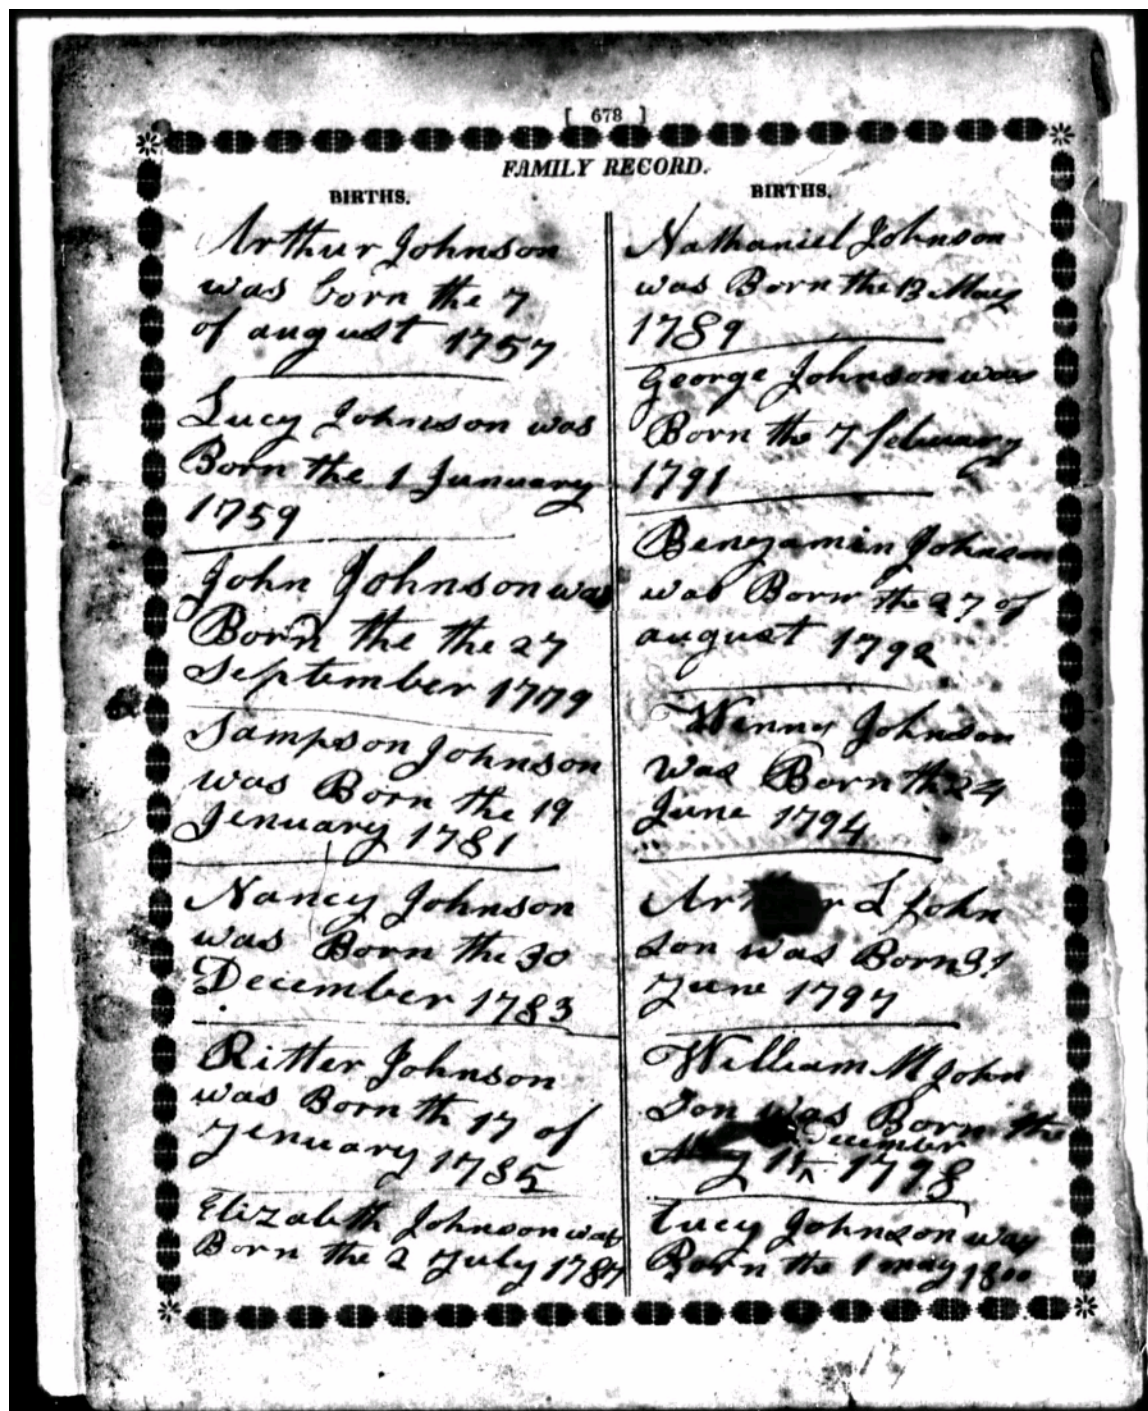 [ 678 ]
FAMILY RECORD.
BIRTHS.
Arthur Johnson
was born the 7
of august 1757
Lucy Johnson was
Born the 1 Junuary
1759
John Johnson was
Born the the 27
September 1779
Sampson Johnson
was Born the 19
Jenuary 1781
Nancy Johnson
was Born the 30
December 1783
Ritter Johnson
was Born th 17 of
Jenuary 1785
Elizabeth Johnson was
Born the 2 July 1787
BIRTHS.
Nathaniel Johnson
was Born the 13 May
1789
George Johnson was
Born the 7 february
1791
Benjamin Johnson
was Born the 27 of
august 1792
Winny Johnson
Was Born th 24
June 1794
L John
son was Born
June 1797
William M John
Son was Born the
December
1798
Lucy Johnson was
Born the 1 may 1800